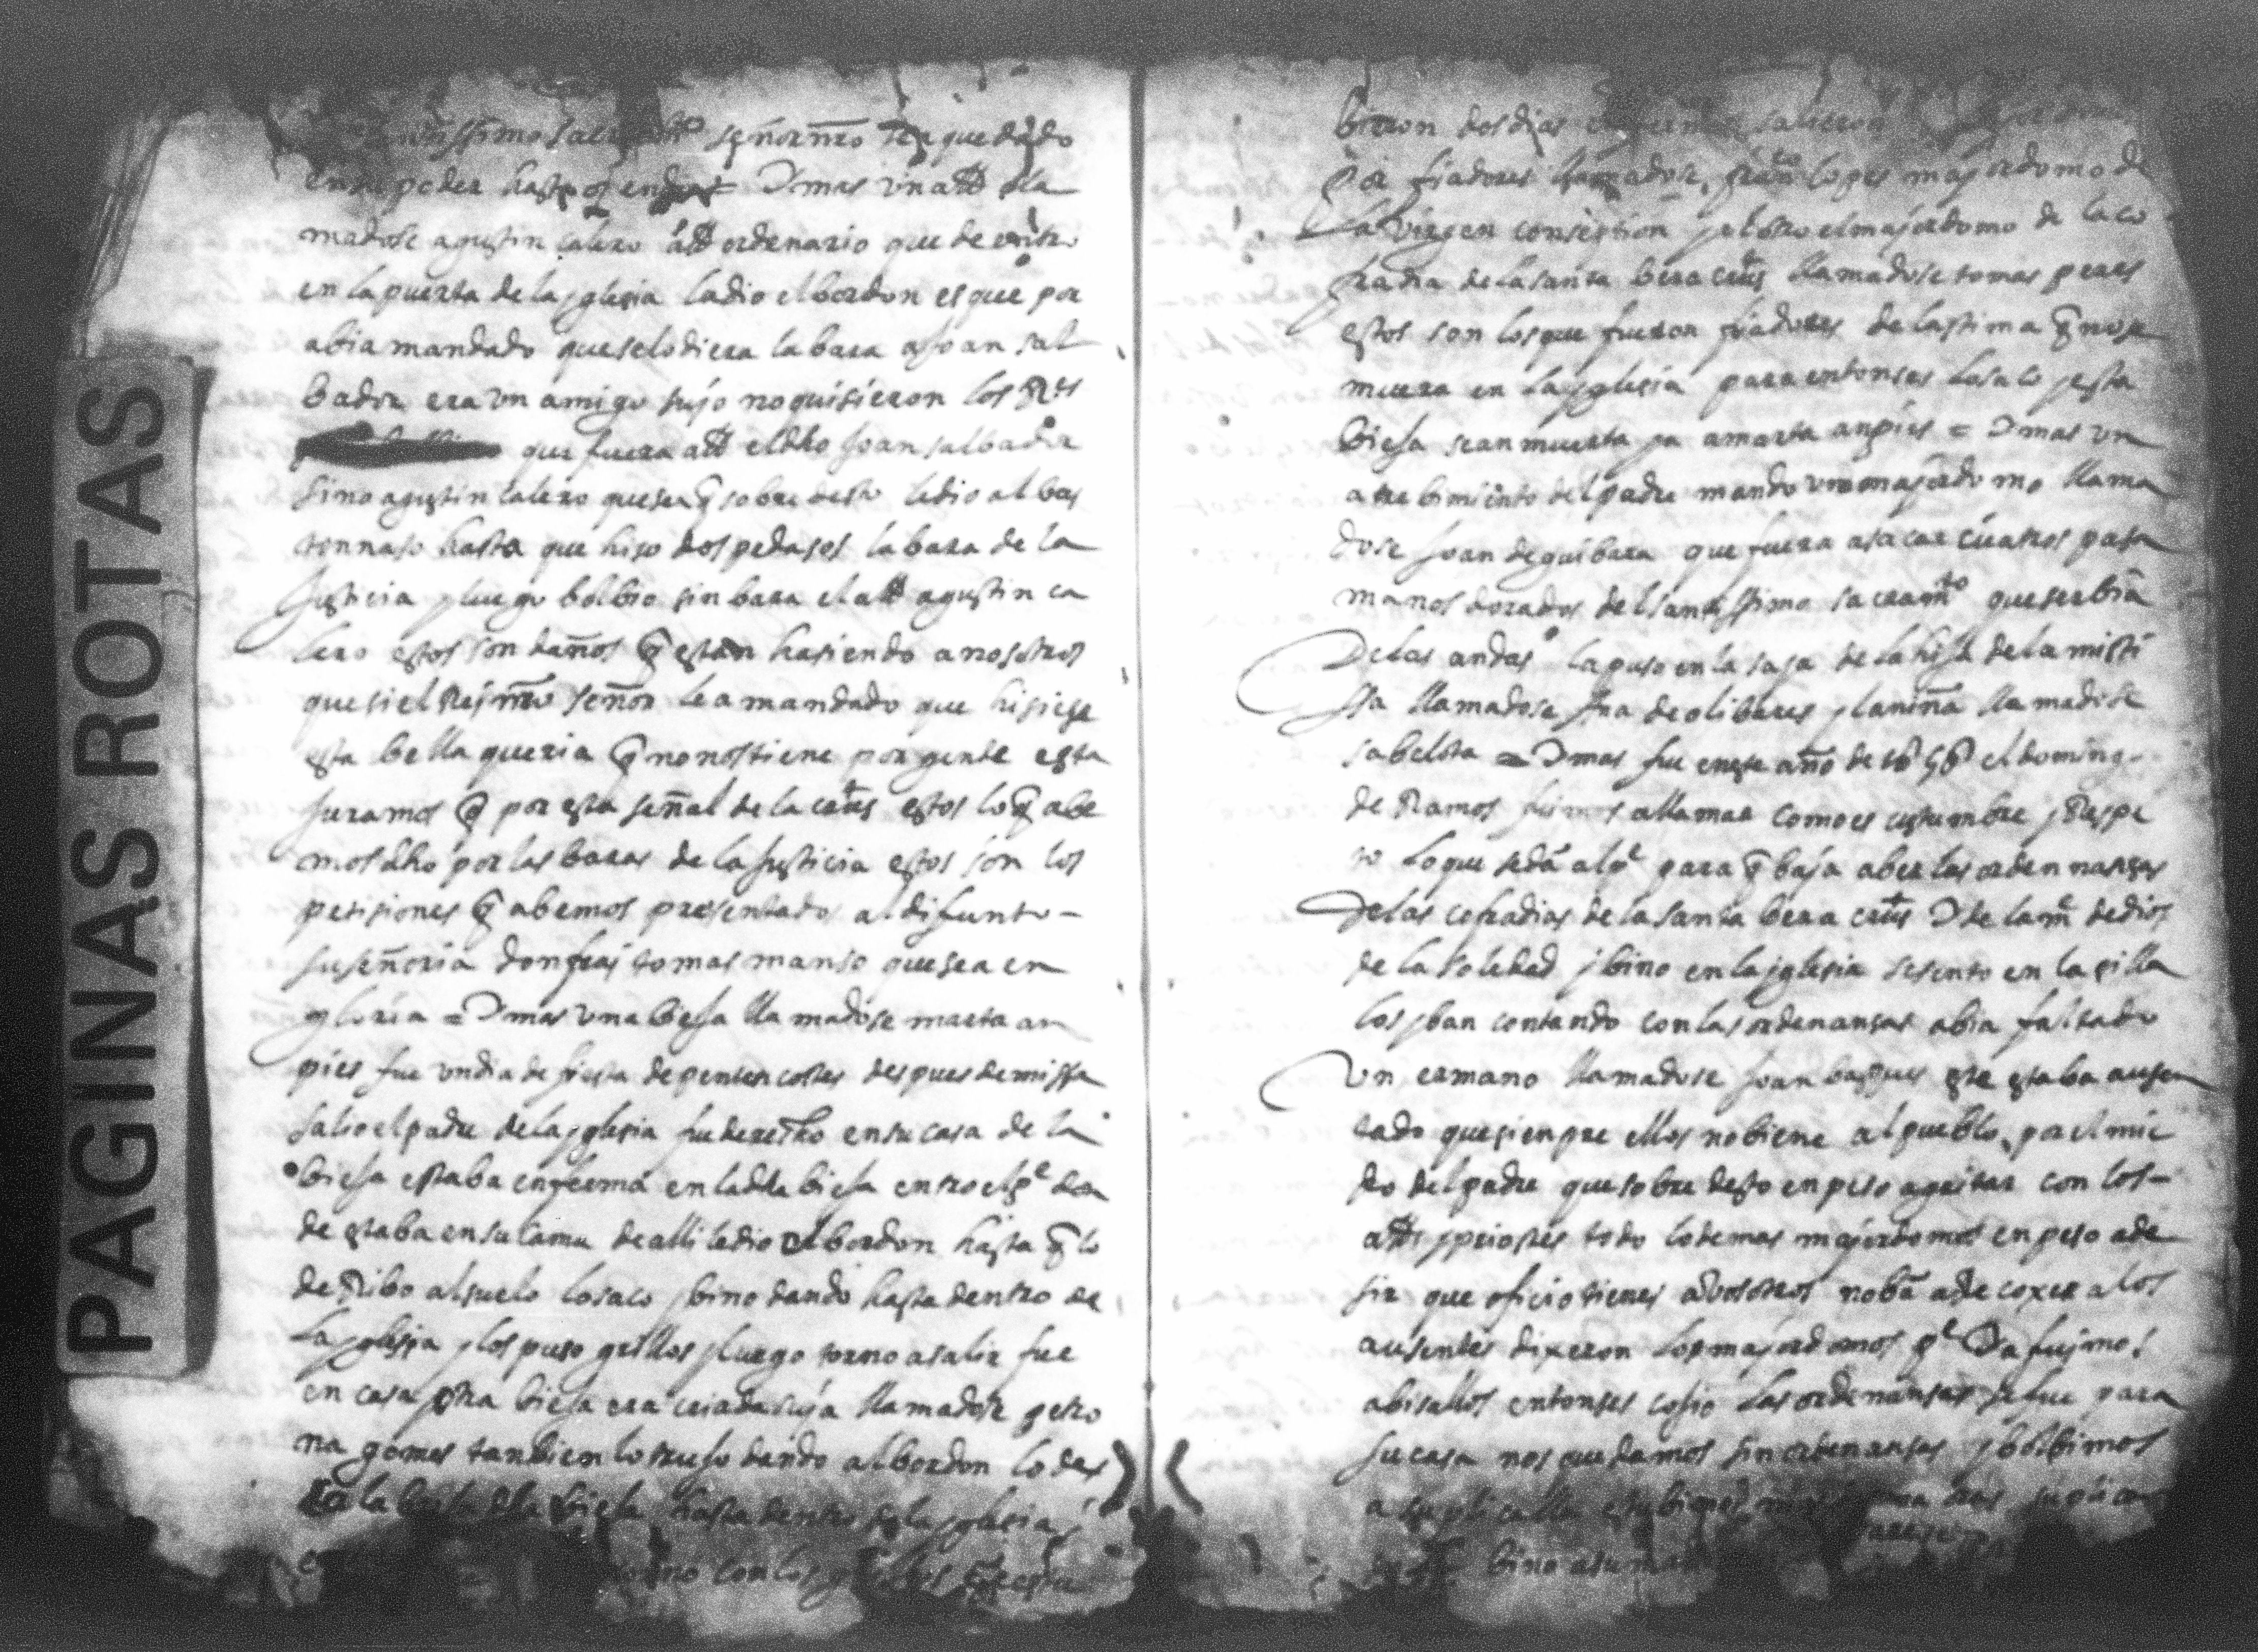 PAGINAS ROTAS
señor nro que dado
en su poder hasta oy en dia = Y mas un alld lla
madose agustin calero alld ordenario que de entro
en la puerta de la yglesia la dio el bordon es que por
abia mandado que se lo diera la bara a Joan sal
bador era un amigo sujo no quisieron los
que fuera alld el dho Joan salbador
sino agustin calero que sea q̃ sobre desto le dio al bor
tonnaso hasta que hiso dos pedasos la bara de la
Justicia y luego bolbio sin bara el alld agustin ca
lero estos son daños q̃ estan hasiendo a nosotros
que si el Rey nro señor le a mandado que hisiese
esta bellaqueria q̃ no nos tiene por gente esta
Juramos q̃ por esta señal de la crus estos lo q̃ abe
mos dho por las baras de la Justicia estos son los
petisiones q̃ abemos presentados al difunto -
su señoria don fray tomas manso que sea en
gloria = Y mas una bieja llamadose marta an
pies fue un dia de fiesta de pentencostes despues de missa
salio el padre de la yglesia fue derecho en su casa de la
bieja estaba enferma en la dha bieja entro el pe don
de estaba en su cama de alli le dio el bordon hasta q̃ lo
deRibo al suelo lo saco y bino dando hasta dentro de
la yglesia y los puso grillos y luego torno a salir fue
en casa otra bieja era criada suya llamadose petro
na gomes tanbien lo trujo dando al bordon lo des
la bieja hasta dentro de la yglesia
con los
bieron dos dias
por fiadores llamadose lopes majordomo de
la virgen consebtion y el otro el majordomo de la co
fradia de la santa bera crus llamadose tomas peres
estos son los que fueron fiadores de lastima q̃ no se
muera en la yglesia para entonses lo saco y esta
bieja sean muerta ya a marta anpies = Y mas un
atrebimiento del padre mando un majordomo llama
dose Joan de guibara que fuera a sacar cuatros pasa
manos dorados del santissimo sacramto que serbia
De las andas la puso en la saja de la hija de la misti
ssa llamadose Jua de olibares y la niña llamadose
sabelota = Y mas fue en este año de 1656 el doming
de Ramos fuimos a llamar como es custumbre y Respe
to lo que se da al pe para q̃ baja a ber las ordennansas
De las cofradias de la santa bera crus Y de la me de dios
de la soledad y bino en la yglesia se sento en la silla
los yban contando con las ordenansas abia faltado
Un ermano llamadose Joan basques este estaba ausen
tado que sienpre ellos no biene al pueblo por el mie
do del padre que sobre desto enpeso a gritar con los -
allds y priostes todo lo demas majordomos enpeso a de
sir que oficio tienes a vosotros no ba a de coxer a los
ausentes dixeron los majordomos pe Ya fuimos
abisallos entonses cojio las ordenansas se fue para
su casa nos quedamos sin ordenansas y bolbimos
a suplicalla estubimos
bino